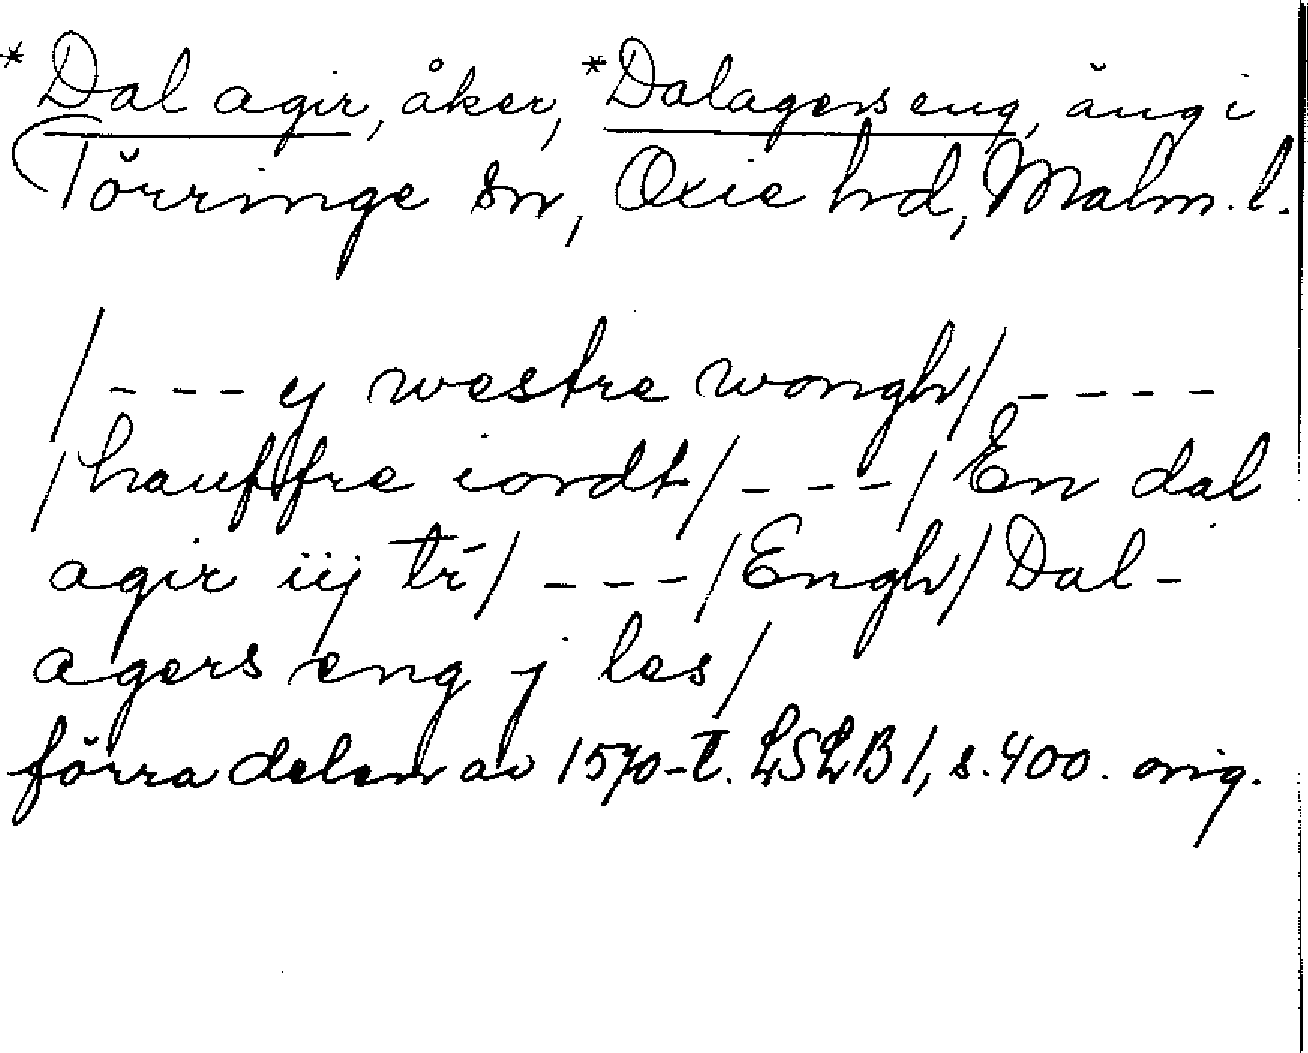 *Dal agir, åker, *Dalagers eng, äng i
Törringe sn, Oxie hd, Malm. l.
/ - - - y westre wongh / - - - -
/ hauffre iordt / - - - / En dal
agir iij tr̄ / - - - / Engh / Dal-
agers eng j les /
förra delen av 1570-t. LSLB 1, s. 400. orig.